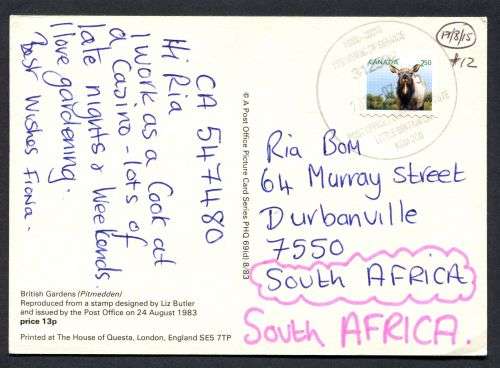 CA 547480
Hi Ria
I work as a Cook at
a Casino - lots of
late nights & weekends.
I love gardening.
Best Wishes Fiona.
British Gardens (Pitmedden)
Reproduced from a stamp designed by Liz Butler
and issued by the Post Office on 24 August 1983
price 13p
Printed at The House of Questa, London, England SE5 7TP
© A Post Office Picture Card Series PHQ 69(d) 8/83
CANADA 250
17/8/15
#12
Ria Bom
64 Murray Street
Durbanville
7550
South AFRICA
South AFRICA.